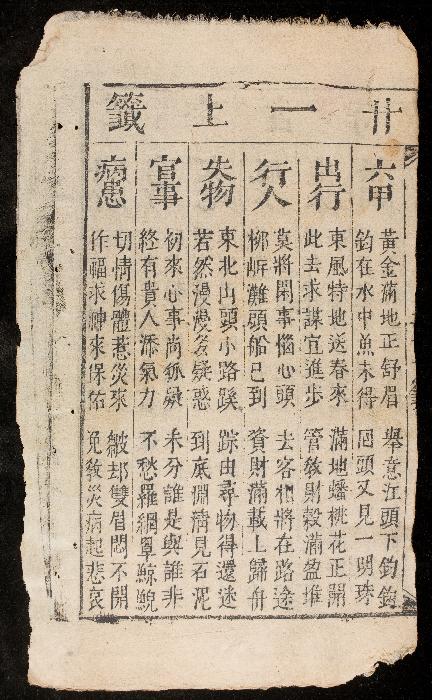 廿一上籤
六甲
黃金滿地正舒眉 舉意江頭下釣鈎
鈎在水中魚未得 回頭又見一明珠
出行
東風特地送春來 滿地蟠桃花正開
此去求謀宜進步 管教財穀滿盈堆
行人
莫將閑事惱心頭 去客相將在路途
柳岍灘頭船已到 資財滿載上歸舟
失物
東北山頭小路蹊 踪由尋物得還迷
若然漫漫多疑惑 到底淵濟見石泥
官事
初來心事尚狐疑 未分誰是與誰非
終有貴人添氣力 不愁羅網罩鯨鯢
病患
切情傷體惹災來 皺却雙眉悶不開
作福求神來保佑 免教災病起悲哀